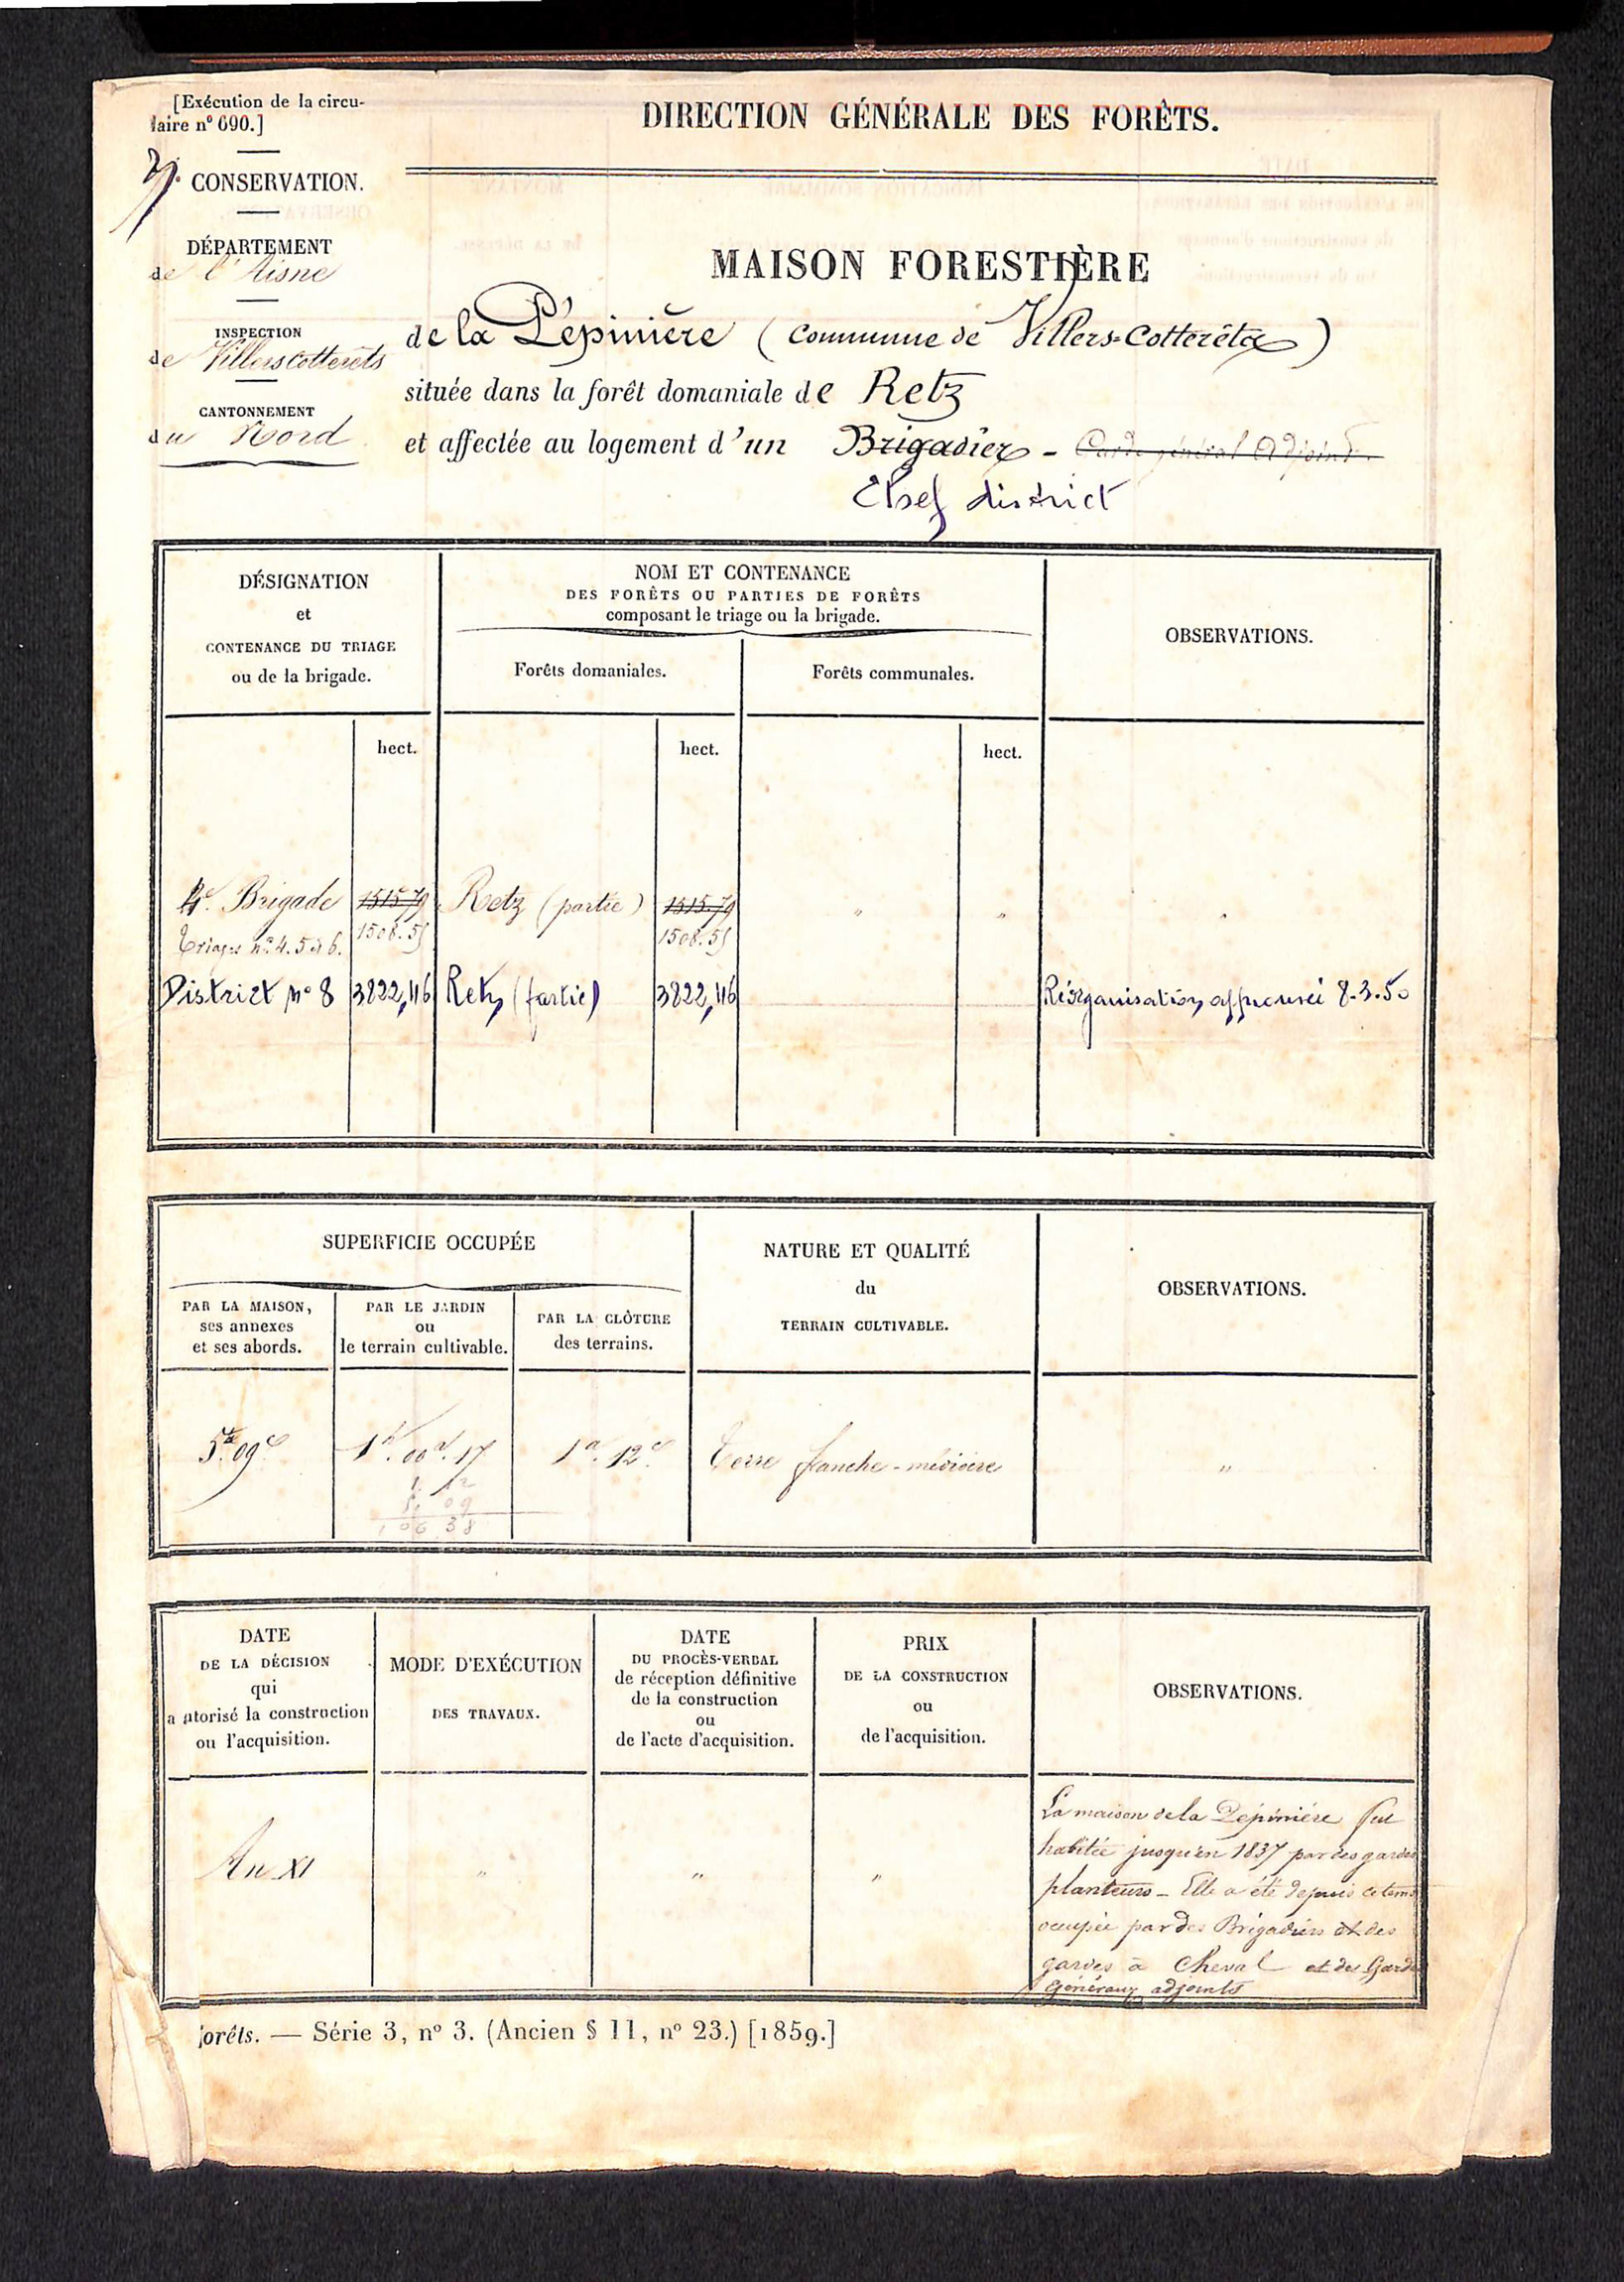 [Exécution de la circu-
laire n° 690.]
DIRECTION GÉNÉRALE DES FORÊTS.
7e CONSERVATION.
DÉPARTEMENT
de l'Aisne
INSPECTION
de Villerscotterêts
CANTONNEMENT
du Nord
MAISON FORESTIÈRE
de la Pépinière (Commune de Villers-Cotterêts)
située dans la forêt domaniale de Retz
et affectée au logement d'un Brigadier - Garde général Adjoint
Chef district
DÉSIGNATION
et
CONTENANCE DU TRIAGE
ou de la brigade.
NOM ET CONTENANCE
DES FORÊTS OU PARTIES DE FORÊTS
composant le triage ou la brigade.
Forêts domaniales.
Forêts communales.
OBSERVATIONS.
hect.
hect.
hect.
4e Brigade 1515.79 Retz (partie) 1515.79 " " "
Triages nos 4. 5 et 6. 1508.51 1508.51
District n° 8 3822,46 Retz (partie) 3822,46 Réorganisation approuvée 8.3.50
SUPERFICIE OCCUPÉE
PAR LA MAISON,
ses annexes
et ses abords.
PAR LE JARDIN
ou
le terrain cultivable.
PAR LA CLÔTURE
des terrains.
NATURE ET QUALITÉ
du
TERRAIN CULTIVABLE.
OBSERVATIONS.
5a 09c 1h. 00a. 17 1a. 12c. Terre franche - médiocre "
1. 12
5. 09
1 06 38
DATE
DE LA DÉCISION
qui
a autorisé la construction
ou l'acquisition.
MODE D'EXÉCUTION
DES TRAVAUX.
DATE
DU PROCÈS-VERBAL
de réception définitive
de la construction
ou
de l'acte d'acquisition.
PRIX
DE LA CONSTRUCTION
ou
de l'acquisition.
OBSERVATIONS.
An XI " " "
La maison de la Pépinière fut
habitée jusqu'en 1837 par des gardes
planteurs - Elle a été depuis ce tems
occupée par des Brigadiers et des
gardes à Cheval et des Gardes
Généraux adjoints
Forêts. — Série 3, n° 3. (Ancien § 11, n° 23.) [1859.]